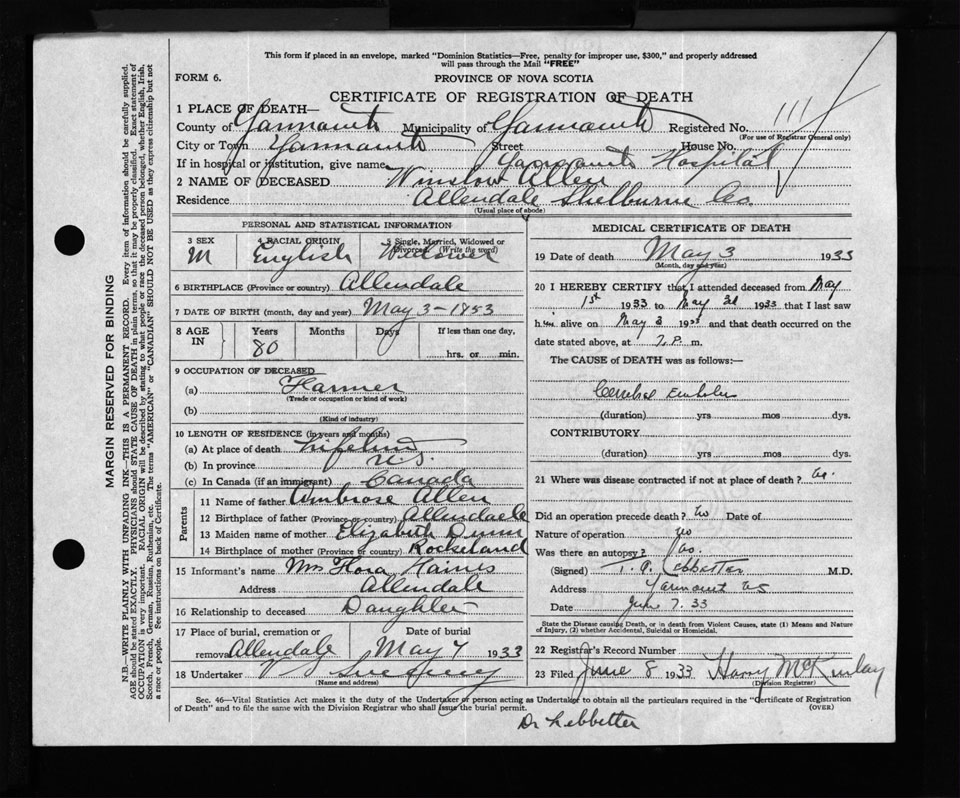 This form if placed in an envelope, marked "Dominion Statistics—Free, penalty for improper use, $300," and properly addressed
will pass through the Mail "FREE"
FORM 6.
PROVINCE OF NOVA SCOTIA
CERTIFICATE OF REGISTRATION OF DEATH
1 PLACE OF DEATH—
County of Yarmouth Municipality of Yarmouth Registered No. 111
(For use of Registrar General only)
City or Town Yarmouth Street House No.
If in hospital or institution, give name Yarmouth Hospital
2 NAME OF DECEASED Winslow Allen
Residence Allendale Shelburne Co.
(Usual place of abode)
PERSONAL AND STATISTICAL INFORMATION
3 SEX 4 RACIAL ORIGIN 5 Single, Married, Widowed or Divorced (Write the word)
M English Widower
6 BIRTHPLACE (Province or country) Allendale
7 DATE OF BIRTH (month, day and year) May 3-1853
8 AGE IN Years Months Days If less than one day,
80 hrs. or min.
9 OCCUPATION OF DECEASED
(a) Farmer
(Trade or occupation or kind of work)
(b)
(Kind of industry)
10 LENGTH OF RESIDENCE (in years and months)
(a) At place of death Lifetime
(b) In province N.S.
(c) In Canada (if an immigrant) Canada
Parents
11 Name of father Ambrose Allen
12 Birthplace of father (Province or country) Allendale
13 Maiden name of mother Elizabeth Dunn
14 Birthplace of mother (Province or country) Rockeland
15 Informant's name Mrs Flora Haines
Address Allendale
16 Relationship to deceased Daughter
17 Place of burial, cremation or removal Date of burial
Allendale May 7 1933
18 Undertaker
(Name and address)
MEDICAL CERTIFICATE OF DEATH
19 Date of death May 3 1933
(Month, day and year)
20 I HEREBY CERTIFY that I attended deceased from May
1st 1933 to May 3d 1933 that I last saw
him alive on May 3 1933 and that death occurred on the
date stated above, at 7 P. m.
The CAUSE of DEATH was as follows:—
Cerebral Embolus
(duration) yrs mos dys.
CONTRIBUTORY
(duration) yrs mos dys.
21 Where was disease contracted if not at place of death?
Did an operation precede death? No Date of
Nature of operation no
Was there an autopsy? No.
(Signed) Lebbetter M.D.
Address Yarmouth NS
Date June 7. 33
State the Disease causing Death, or in death from Violent Causes, state (1) Means and Nature
of Injury, (2) whether Accidental, Suicidal or Homicidal.
22 Registrar's Record Number
23 Filed June 8 1933 Harry McKinlay
(Division Registrar)
Sec. 46—Vital Statistics Act makes it the duty of the Undertaker or person acting as Undertaker to obtain all the particulars required in the "Certificate of Registration
of Death" and to file the same with the Division Registrar who shall issue the burial permit. (OVER)
Dr Lebbetter
MARGIN RESERVED FOR BINDING
N.B.—WRITE PLAINLY WITH UNFADING INK—THIS IS A PERMANENT RECORD. Every item of information should be carefully supplied.
AGE should be stated EXACTLY. PHYSICIANS should STATE CAUSE OF DEATH in plain terms, so that it may be properly classified. Exact statement of
OCCUPATION is very important. RACIAL ORIGIN will be described by stating to what people or race the deceased person belonged, whether English, Irish,
Scotch, French, German, Russian, Ruthenian, etc. The terms "AMERICAN" or "CANADIAN" SHOULD NOT BE USED as they express citizenship but not
a race or people. See instructions on back of Certificate.